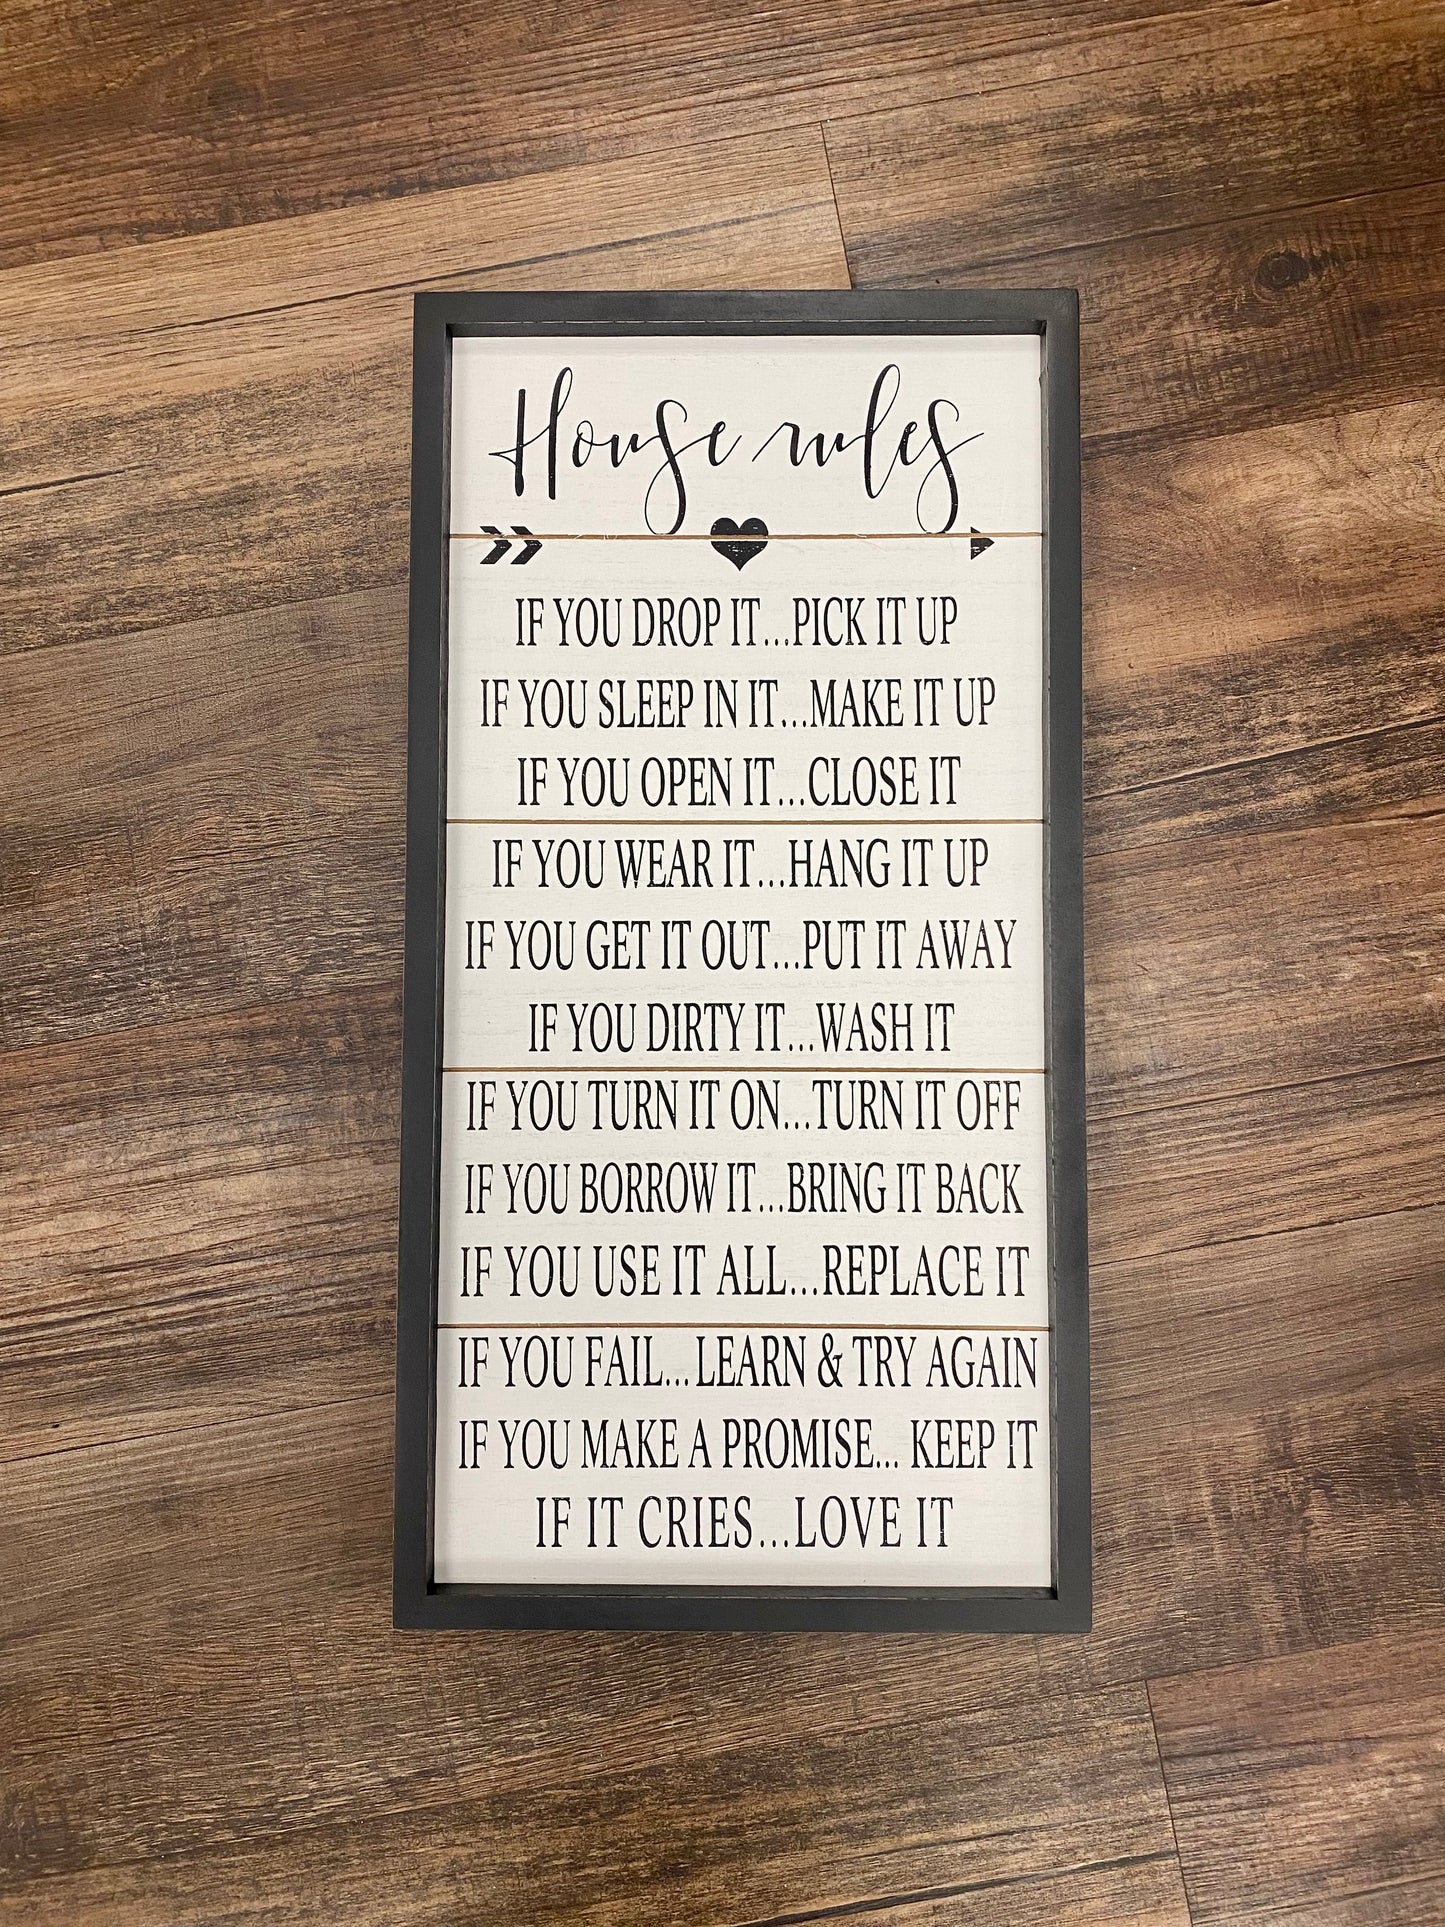 House rules
IF YOU DROP IT...PICK IT UP
IF YOU SLEEP IN IT...MAKE IT UP
IF YOU OPEN IT...CLOSE IT
IF YOU WEAR IT...HANG IT UP
IF YOU GET IT OUT...PUT IT AWAY
IF YOU DIRTY IT...WASH IT
IF YOU TURN IT ON...TURN IT OFF
IF YOU BORROW IT...BRING IT BACK
IF YOU USE IT ALL...REPLACE IT
IF YOU FAIL...LEARN & TRY AGAIN
IF YOU MAKE A PROMISE... KEEP IT
IF IT CRIES...LOVE IT